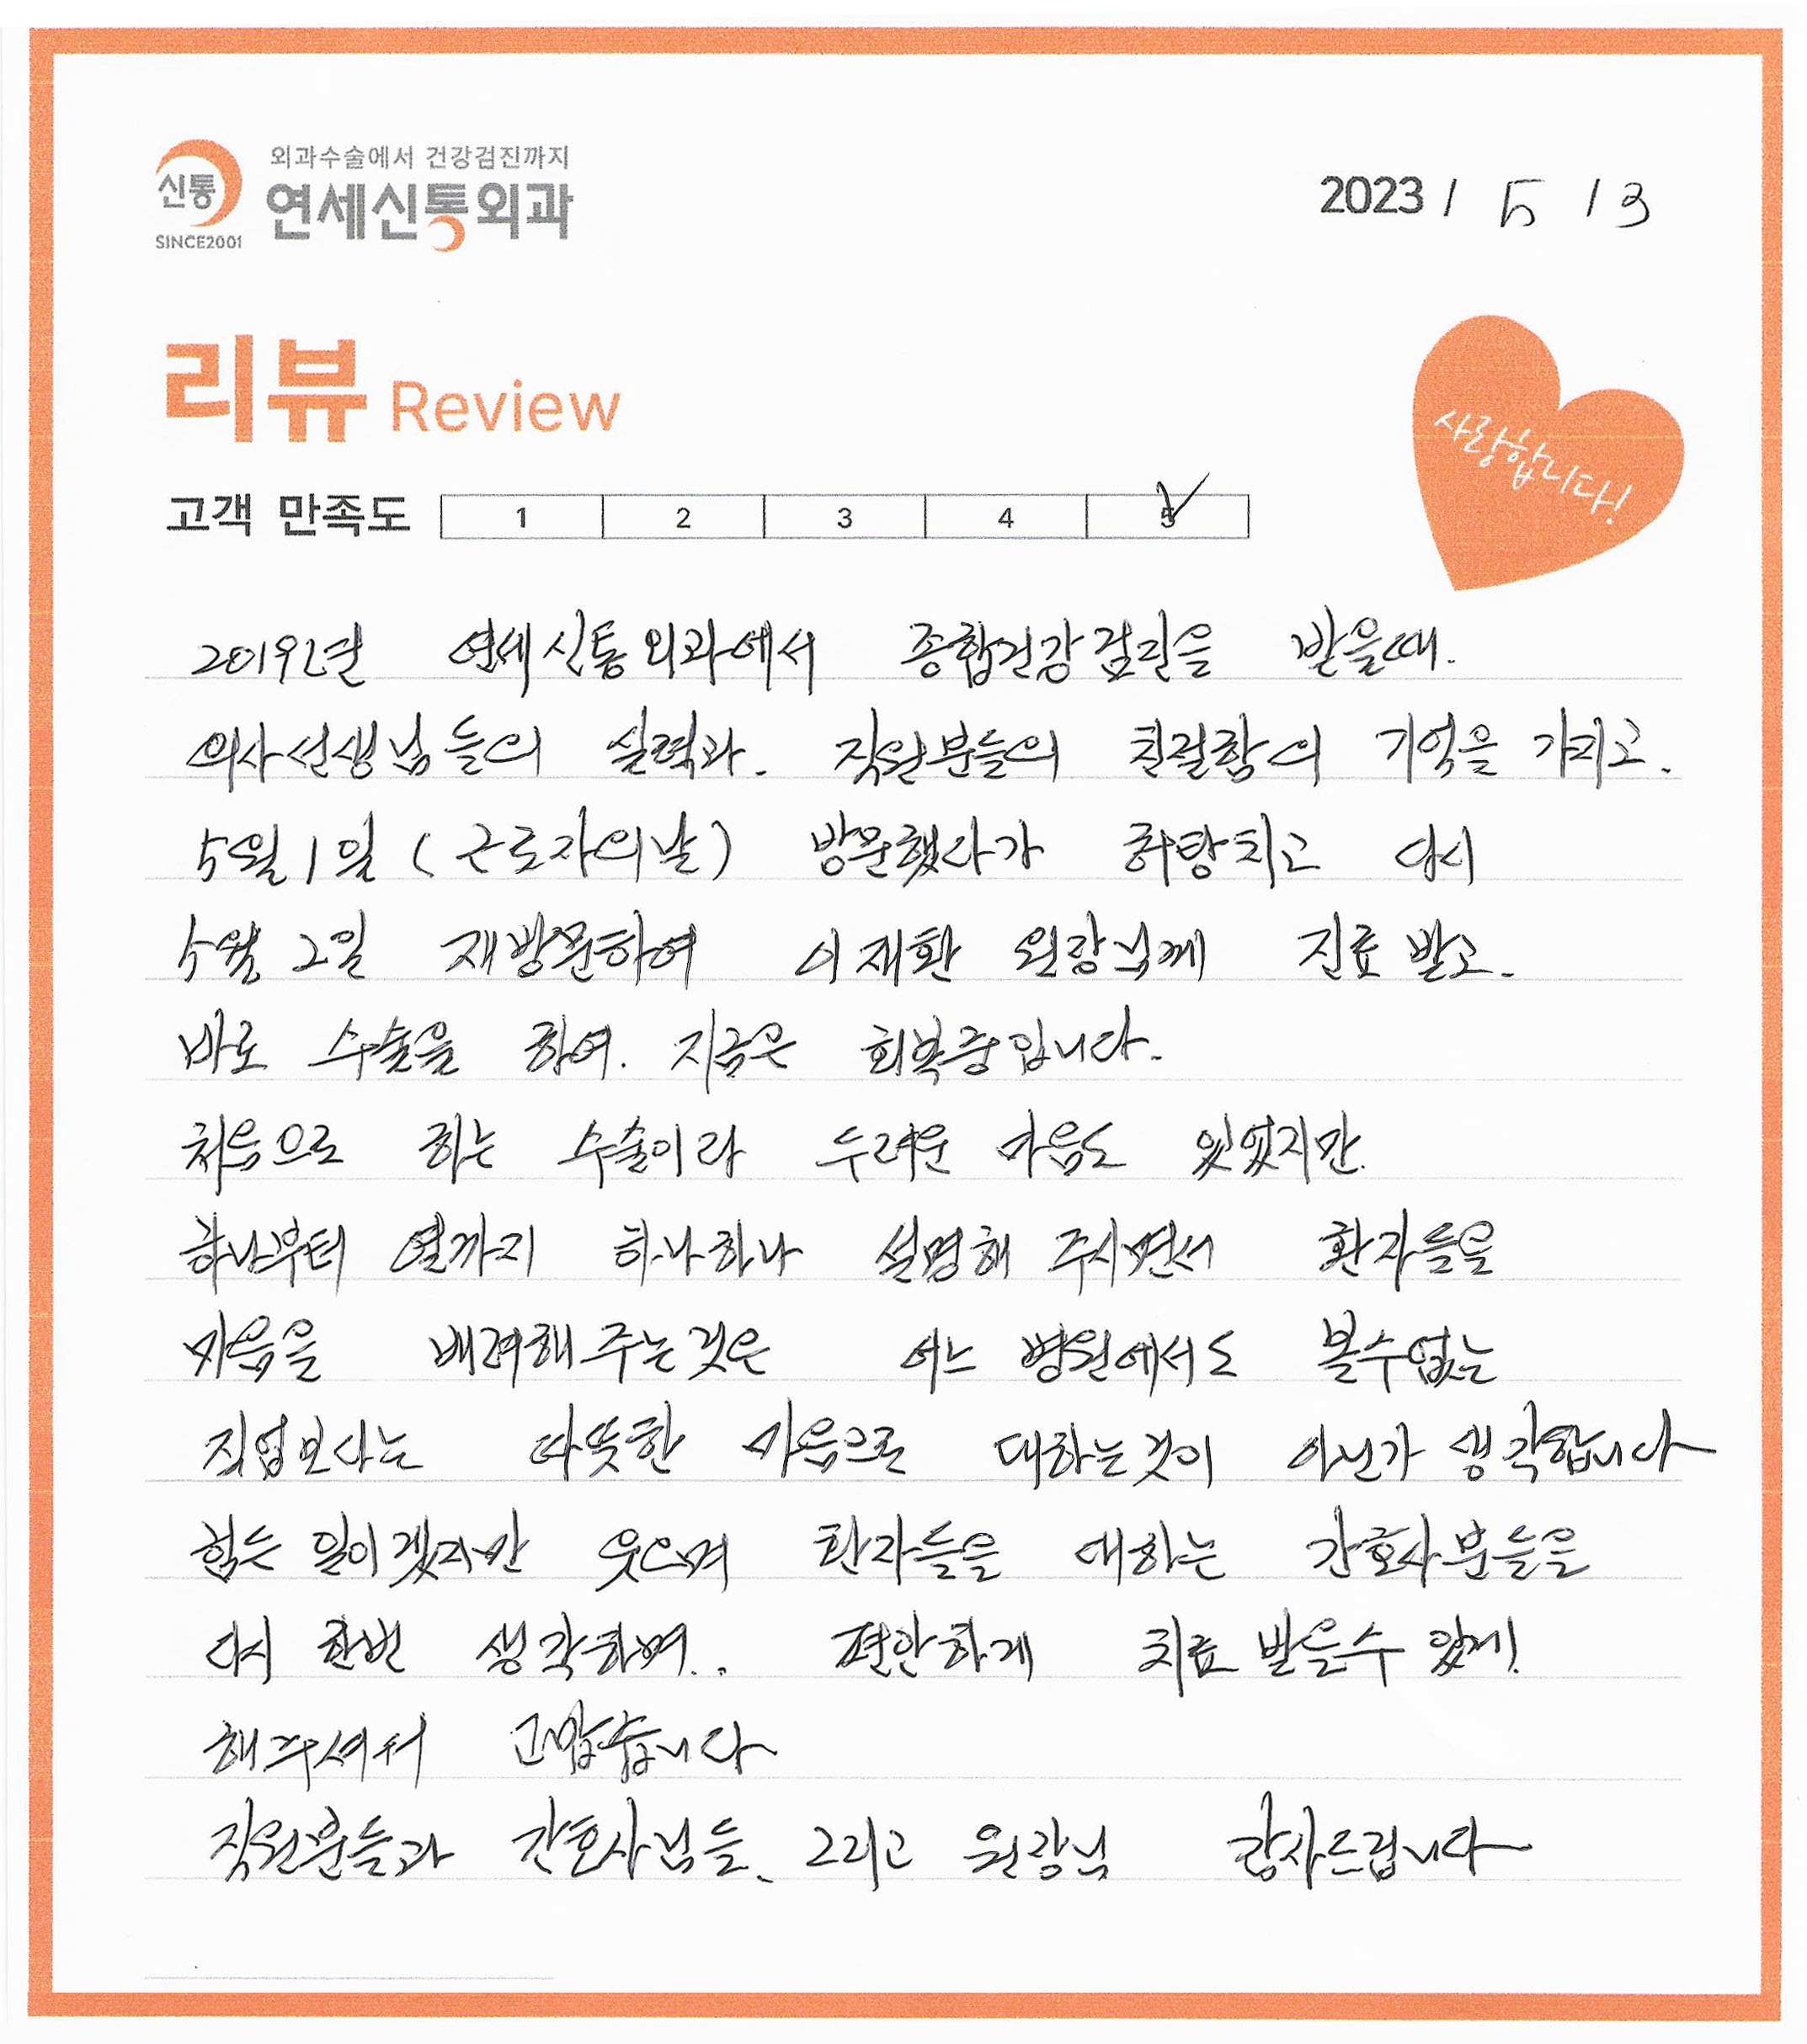 외과수술에서 건강검진까지
신통 연세신통외과
SINCE2001
2023 / 5 / 3
리뷰 Review
사랑합니다!
고객 만족도 1 2 3 4 5
2019년 연세신통외과에서 종합건강검진을 받을때.
의사선생님들의 실력과. 직원분들의 친절함의 기억을 가지고.
5월 1일 (근로자의날) 방문했다가 허탕치고 다시
5월 2일 재방문하여 이재환 원장님께 진료 받고.
바로 수술을 하여. 지금은 회복중입니다.
처음으로 하는 수술이라 두려운 마음도 있었지만.
하나부터 열까지 하나하나 설명해 주시면서 환자들을
마음을 배려해 주는것은 어느 병원에서도 볼수없는
직업보다는 따뜻한 마음으로 대하는것이 아닌가 생각합니다
힘든 일이겠지만 웃으며 환자들을 대하는 간호사분들을
다시 한번 생각하며.. 편안하게 치료 받을수 있게!
해주셔서 고맙습니다
직원분들과 간호사님들. 그리고 원장님 감사드립니다